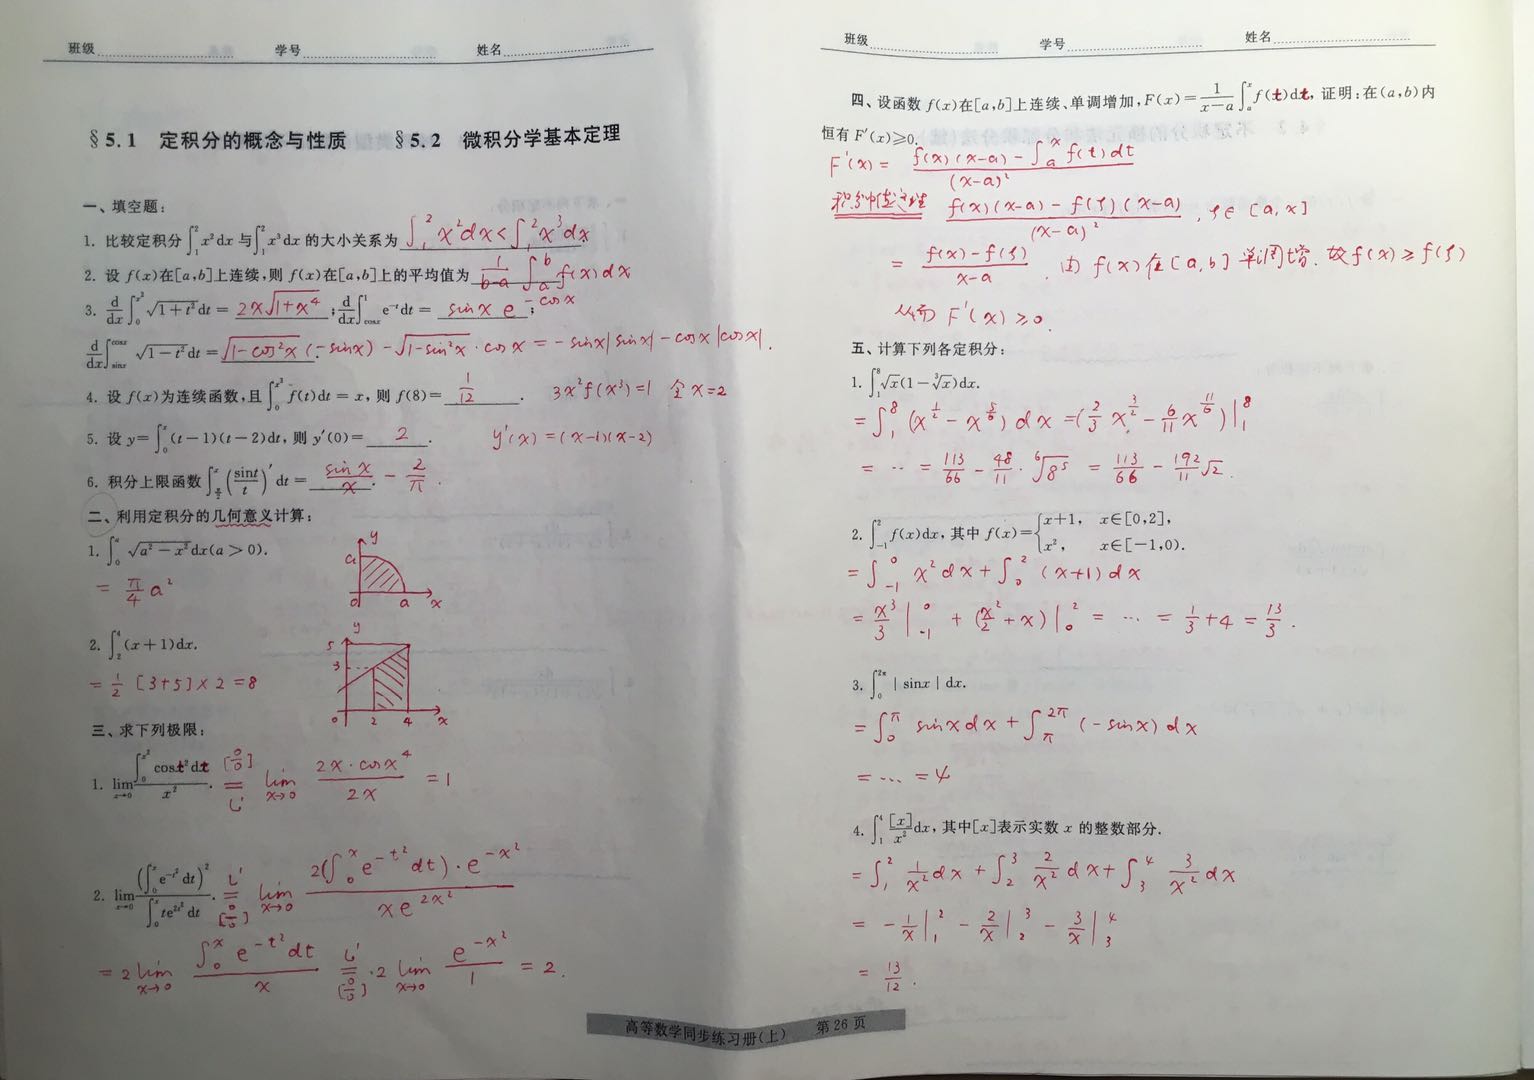 班级 学号 姓名
§5.1 定积分的概念与性质 §5.2 微积分学基本定理
一、填空题:
1. 比较定积分∫₁²x²dx与∫₁²x³dx的大小关系为 ∫₁²x²dx<∫₁²x³dx
2. 设f(x)在[a,b]上连续,则f(x)在[a,b]上的平均值为 1/(b-a) ∫ₐᵇf(x)dx
3. d/dx∫₀^(x²)√(1+t²)dt= 2x√(1+x⁴) ; d/dx∫_(cosx)^1 e^(-t)dt= sinx e^(-cosx) ;
d/dx∫_(sinx)^(cosx) √(1-t²)dt= √(1-cos²x)(-sinx)-√(1-sin²x)·cosx=-sinx|sinx|-cosx|cosx|.
4. 设f(x)为连续函数,且∫₀^(x³)f(t)dt=x,则f(8)= 1/12 . 3x²f(x³)=1 令x=2
5. 设y=∫₀ˣ(t-1)(t-2)dt,则y′(0)= 2 . y′(x)=(x-1)(x-2)
6. 积分上限函数∫_(π/2)^x (sint/t)′dt= sinx/x - 2/π .
二、利用定积分的几何意义计算:
1. ∫₀ᵃ√(a²-x²)dx(a>0).
= π/4 a²
y a 0 a x
2. ∫₂⁴(x+1)dx.
= 1/2 [3+5]×2=8
y 5 3 0 2 4 x
三、求下列极限:
1. lim_(x→0) ∫₀^(x²)cost²dt / x² . [0/0] = L′ lim_(x→0) 2x·cosx⁴ / 2x =1
2. lim_(x→0) (∫₀ˣe^(-t²)dt)² / ∫₀ˣte^(2t²)dt . L′ = [0/0] lim_(x→0) 2(∫₀ˣe^(-t²)dt)·e^(-x²) / xe^(2x²)
=2lim_(x→0) ∫₀ˣe^(-t²)dt / x L′ = [0/0] ·2lim_(x→0) e^(-x²)/1 =2.
班级 学号 姓名
四、设函数f(x)在[a,b]上连续、单调增加,F(x)=1/(x-a) ∫ₐˣf(t)dt,证明:在(a,b)内
恒有F′(x)≥0.
F′(x)= [f(x)(x-a)-∫ₐˣf(t)dt] / (x-a)²
积分中值定理 [f(x)(x-a)-f(ξ)(x-a)] / (x-a)² , ξ∈[a,x]
= [f(x)-f(ξ)] / (x-a) . 由f(x)在[a,b]单调增. 故f(x)≥f(ξ)
从而F′(x)≥0.
五、计算下列各定积分:
1. ∫₁⁸√x(1-∛x)dx.
=∫₁⁸(x^(1/2)-x^(5/6))dx=(2/3 x^(3/2)-6/11 x^(11/6))|₁⁸
= ... = 113/66 - 48/11 · ⁶√8⁵ = 113/66 - 192/11 √2.
2. ∫₋₁²f(x)dx,其中f(x)={x+1, x∈[0,2],
x², x∈[-1,0).
=∫₋₁⁰x²dx+∫₀²(x+1)dx
= x³/3|₋₁⁰ + (x²/2+x)|₀² = ... = 1/3+4 = 13/3 .
3. ∫₀^(2π)|sinx|dx.
=∫₀^π sinxdx+∫_π^(2π)(-sinx)dx
= ... =4
4. ∫₁⁴ [x]/x² dx,其中[x]表示实数x的整数部分.
=∫₁² 1/x² dx+∫₂³ 2/x² dx+∫₃⁴ 3/x² dx
= -1/x|₁² - 2/x|₂³ - 3/x|₃⁴
= 13/12 .
高等数学同步练习册(上) 第26页